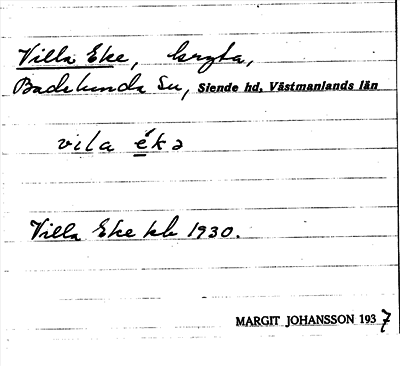 Villa Eke, bryta,
Badelunda Sn, Siende hd. Västmanlands län
vila ékə
Villa Eke kb 1930.
MARGIT JOHANSSON 1937